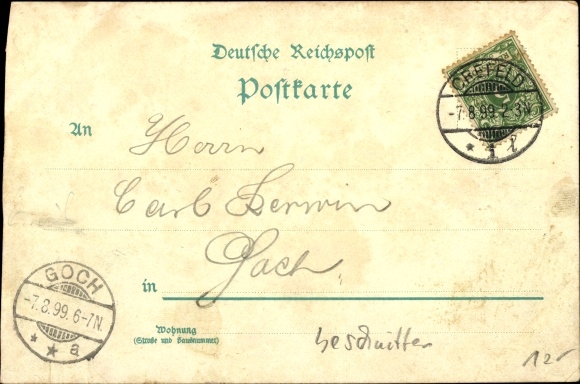 Deutsche Reichspost
Postkarte
CREFELD
-7.8.99. 2-3N.
* 1 l
An
Herrn
Carl Derwin
Goch
in
GOCH
-7.8.99. 6-7N.
* * a
Wohnung
(Straße und Hausnummer)
beschnitten
12,-